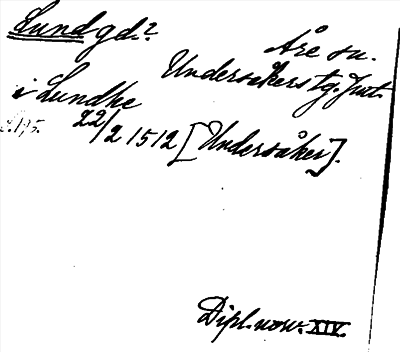 Lund gd.? Åre sn.
Undersåkers tg. Jmt.
i Lundhe
22/2 1512 [Undersåker].
Dipl. norv. XIV.